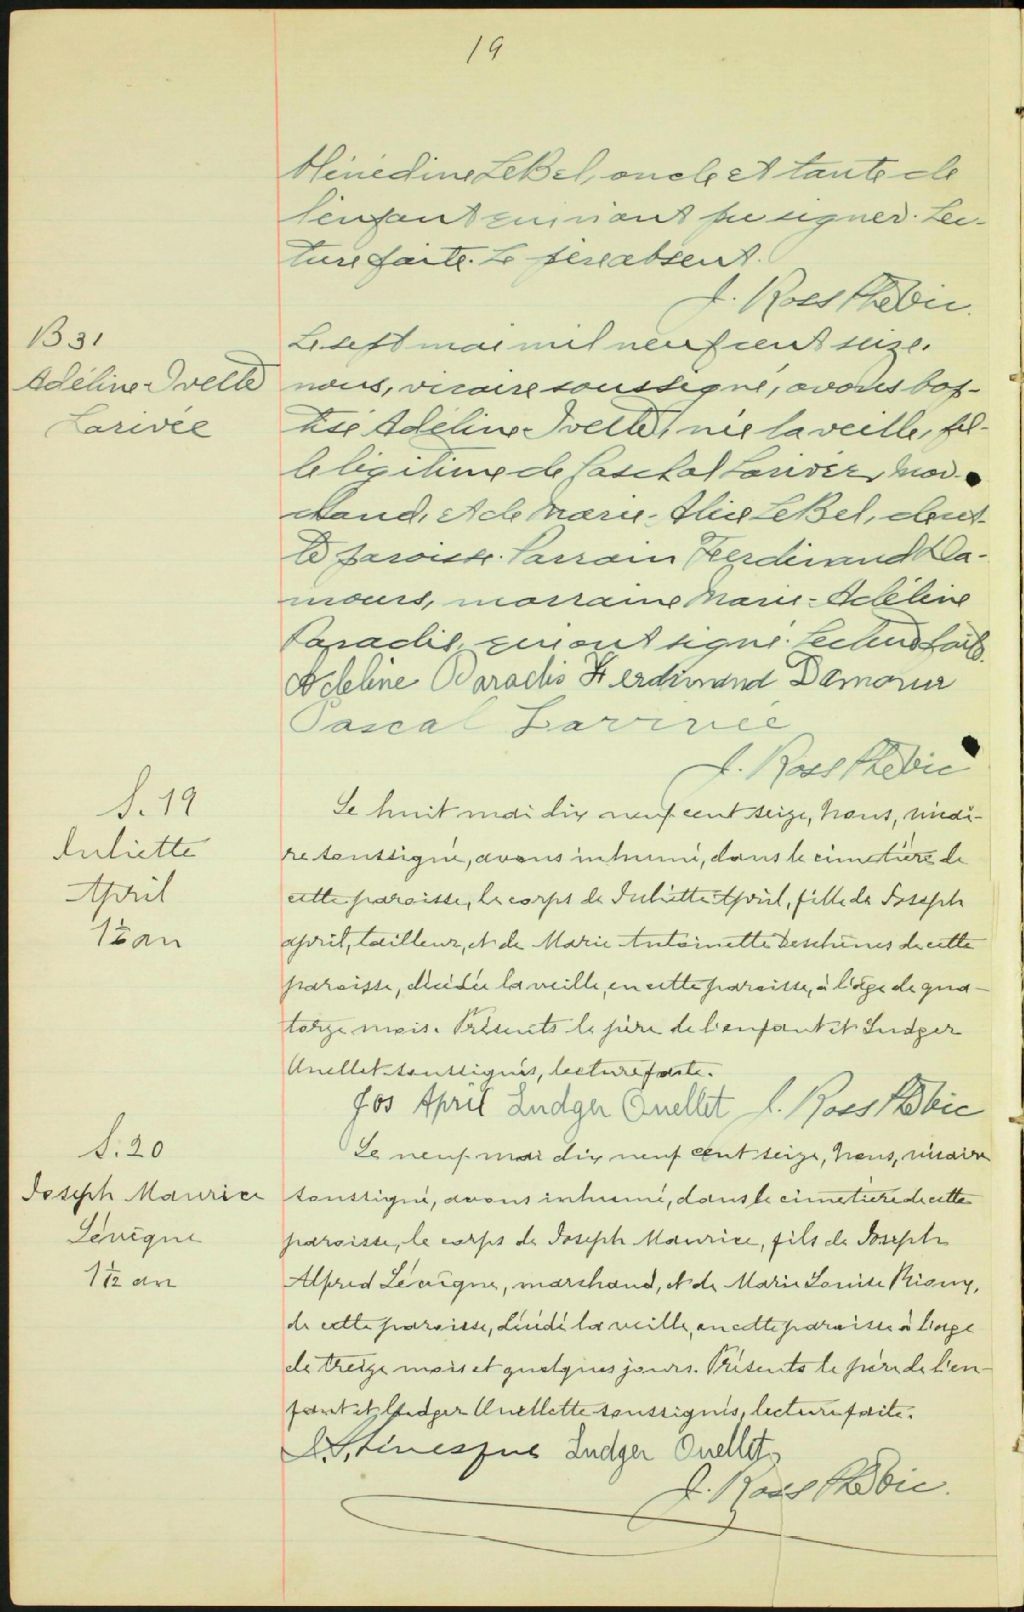 19
Hénédine LeBel, oncle et tante de
l'enfant qui n'ont pu signer. Lec-
ture faite. Le père absent.
J. Ross Ptre Vic.
B 31
Adéline-Ivette
Larivée
Le sept mai mil neuf cent seize,
nous, vicaire soussigné, avons bap-
tisé Adéline-Ivette, née la veille, fil-
le légitime de Paschal Larivée, mar-
chand, et de Marie-Alice LeBel, de cet-
te paroisse. Parrain Ferdinand Da-
mours, marraine Marie-Adéline
Paradis, qui ont signé. Lecture faite.
Adeline Paradis Ferdinand Damour
Pascal Larivée
J. Ross Ptre Vic
S. 19
Juliette
April
1 2/12 an
Le huit mai dix neuf cent seize, Nous, vicai-
re soussigné, avons inhumé, dans le cimetière de
cette paroisse, le corps de Juliette April, fille de Joseph
april, tailleur, et de Marie Antoinette Deschênes de cette
paroisse, décédée la veille, en cette paroisse, à l'âge de qua-
torze mois. Présents le père de l'enfant et Ludger
Ouellet soussignés, lecture faite.
Jos April Ludger Ouellet J. Ross Ptre Vic
S. 20
Joseph Maurice
Lévêque
1 1/12 an
Le neuf mai dix neuf cent seize, Nous, vicaire
soussigné, avons inhumé, dans le cimetière de cette
paroisse, le corps de Joseph Maurice, fils de Joseph
Alfred Lévêque, marchand, et de Marie Louise
de cette paroisse, décédé la veille, en cette paroisse à l'age
de treize mois et quelques jours. Présents le père de l'en-
fant et Ludger Ouellette soussignés, lecture faite.
Ludger Ouellet
J. Ross Ptre Vic.